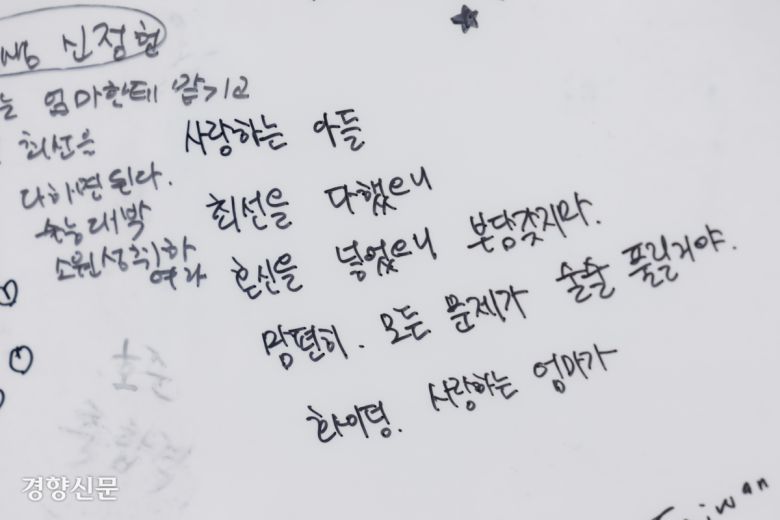 신정현
엄마한테 맡기고
최선은
다하면 된다.
수능대박
소원성취하
여라
사랑하는 아들
최선을 다했으니
혼신을 넣었으니 부담갖지마.
맘편히. 모든 문제가 술술 풀릴거야.
화이팅. 사랑하는 엄마가
경향신문